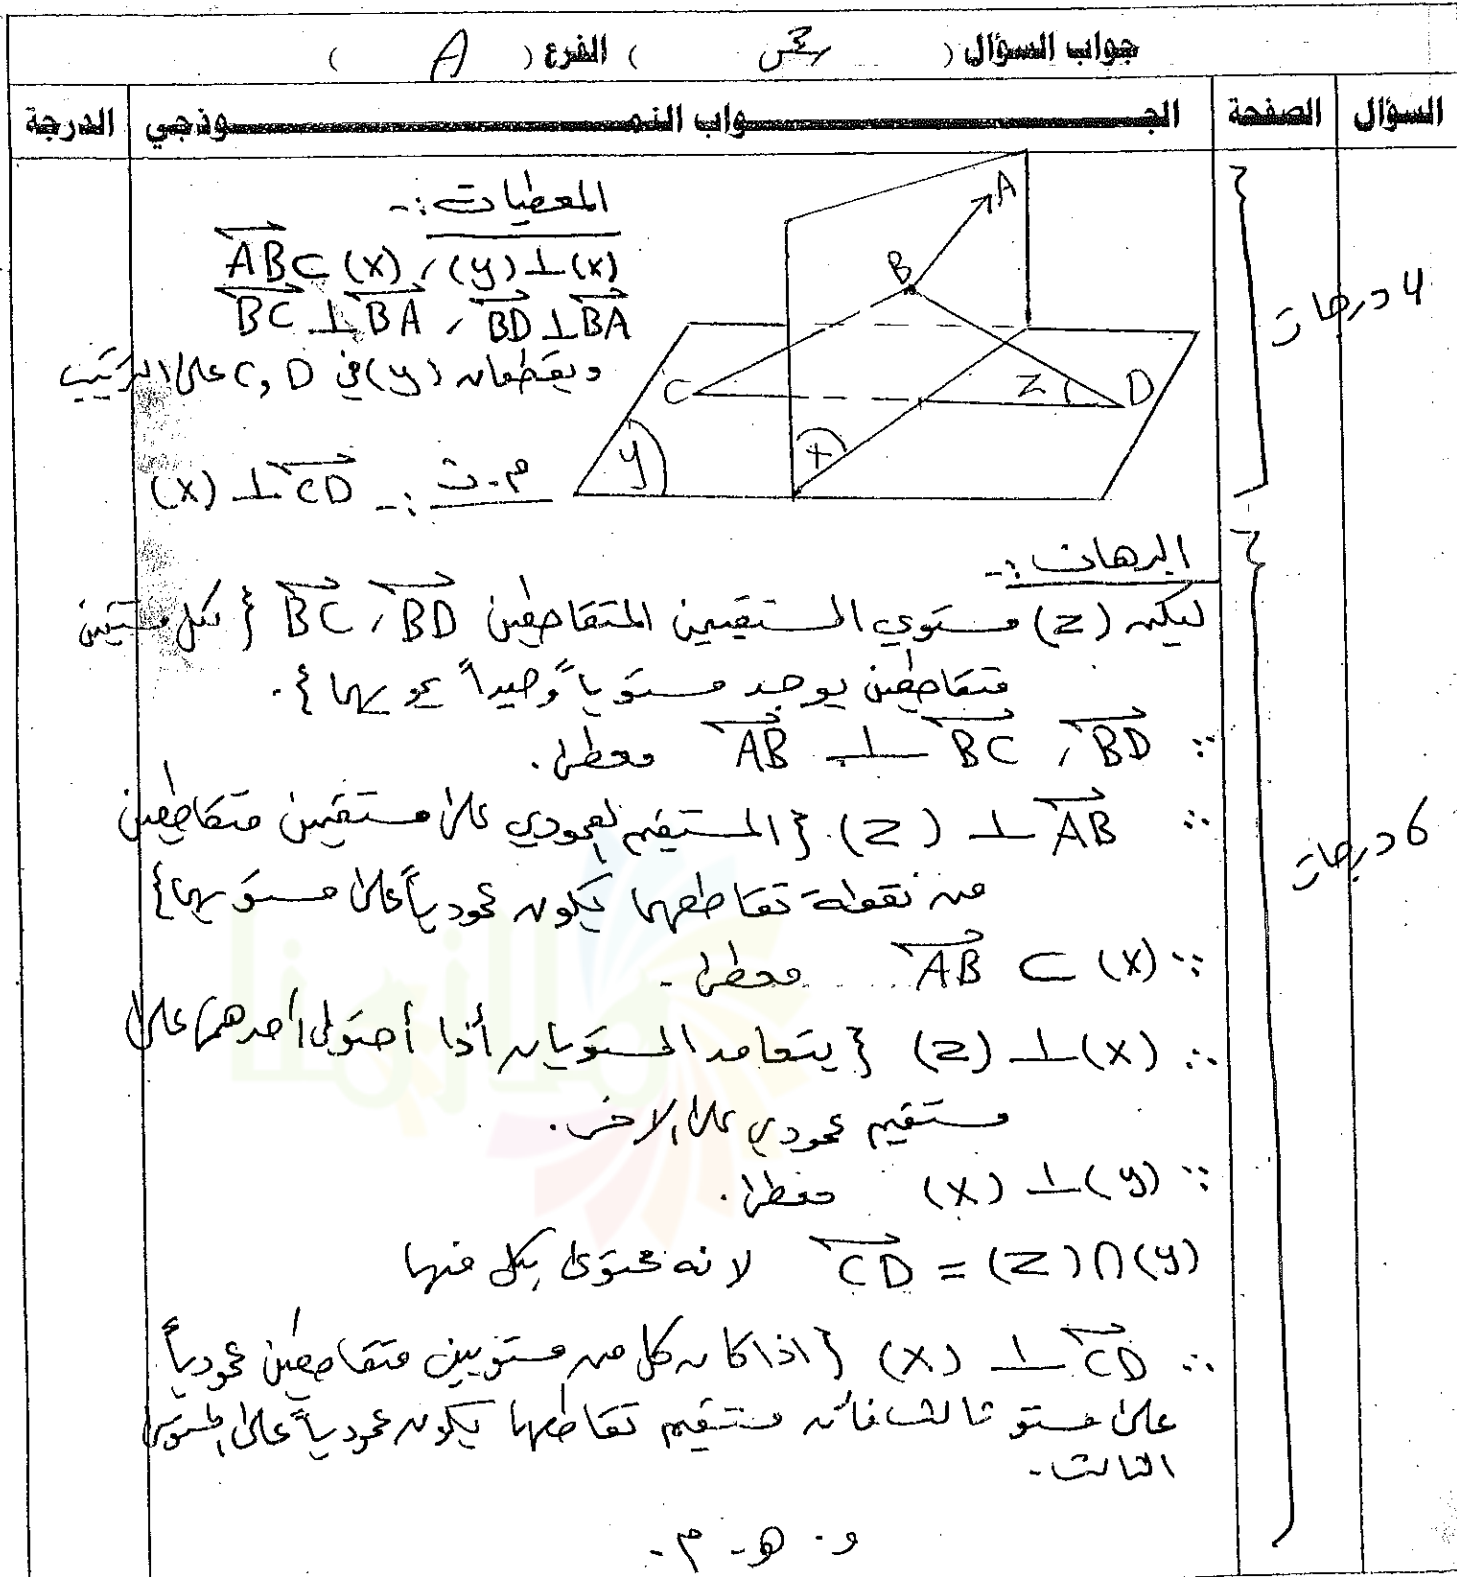 جواب السؤال ( س3 ) الفرع ( A )
السؤال الصفحة الجـــواب النمـــوذجي الدرجة
المعطيات :-
(y)⊥(x) ، AB⊂(x)
BD⊥BA ، BC⊥BA
ويقطعان (y) في C, D على الترتيب
م.ث :- CD ⊥ (x)
A
B
C
Z
D
y
x
4 درجات
البرهان :-
ليكن (z) مستوي المستقيمين المتقاطعين BC ، BD { لكل مستقيمين
متقاطعين يوجد مستوياً وحيداً يحويهما }.
∵ AB ⊥ BC ، BD معطى.
∴ AB ⊥ (z) { المستقيم العمودي على مستقيمين متقاطعين
من نقطة تقاطعهما يكون عمودياً على مستويهما }
∵ AB ⊂ (x) معطى.
∴ (x)⊥(z) { يتعامد المستويان أذا أحتوى أحدهما على
مستقيم عمودي على الاخر.
∵ (y)⊥(x) معطى.
(y)∩(z) = CD لانه محتوى بكل منهما
∴ CD ⊥ (x) { اذا كان كل من مستويين متقاطعين عمودياً
على مستو ثالث فأن مستقيم تقاطعهما يكون عمودياً على المستوى
الثالث.
و. هـ. م.
6 درجات
ملازمنا